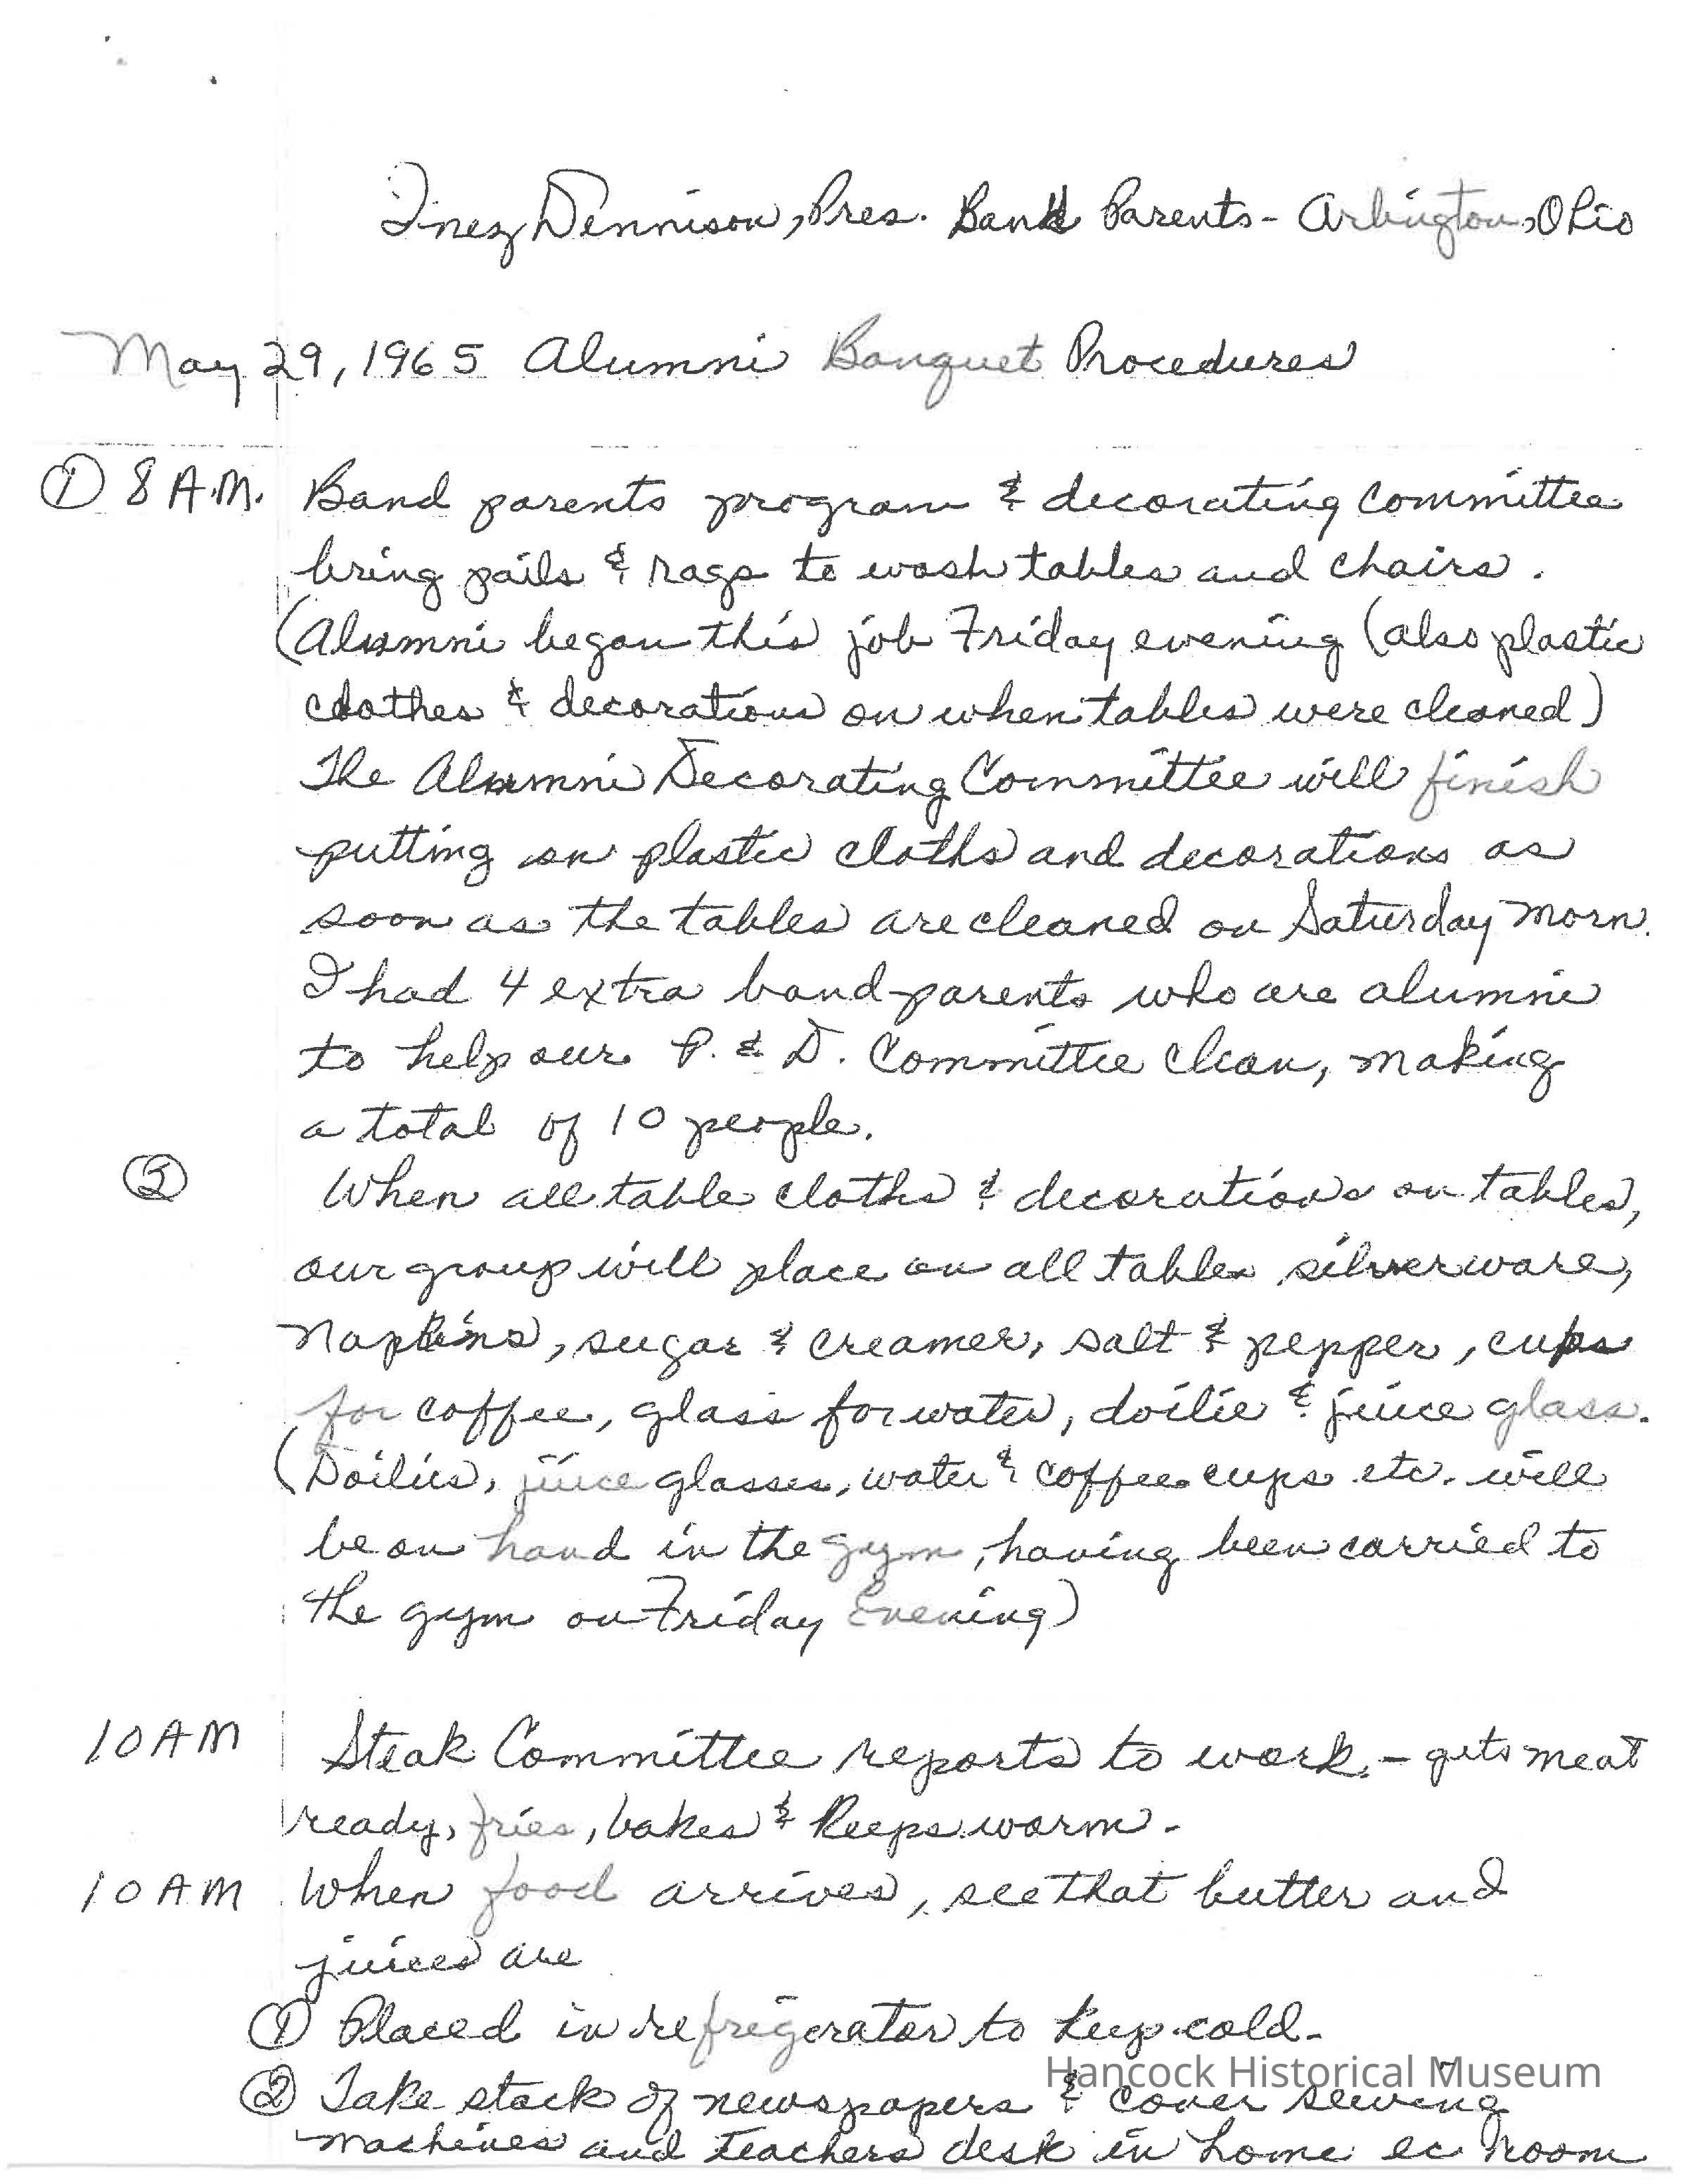 Inez Dennison, Pres. Band Parents - Arlington, Ohio
May 29, 1965 Alumni Banquet Procedures
① 8 A.M. Band parents program & decorating Committee
bring pails & rags to wash tables and chairs.
(Alumni began this job Friday evening (also plastic
clothes & decorations on when tables were cleaned)
The Alumni Decorating Committee will finish
putting on plastic cloths and decorations as
soon as the tables are cleaned on Saturday morn.
I had 4 extra band parents who are alumni
to help our P. & D. Committee clean, making
a total of 10 people.
② When all table cloths & decorations on tables,
our group will place on all tables silverware,
Napkins, sugar & creamer, salt & pepper, cups
for coffee, glass for water, doilie & juice glass.
(Doilies, juice glasses, water & coffee cups etc. will
be on hand in the gym, having been carried to
the gym on Friday Evening)
10 AM Steak Committee reports to work. - gets meat
ready, fries, bakes & keeps warm -
10 AM When food arrives, see that butter and
juices are
① Placed in refrigerator to keep cold -
Hancock Historical Museum
② Take stack of newspapers & cover sewing
machines and teachers desk in home ec room